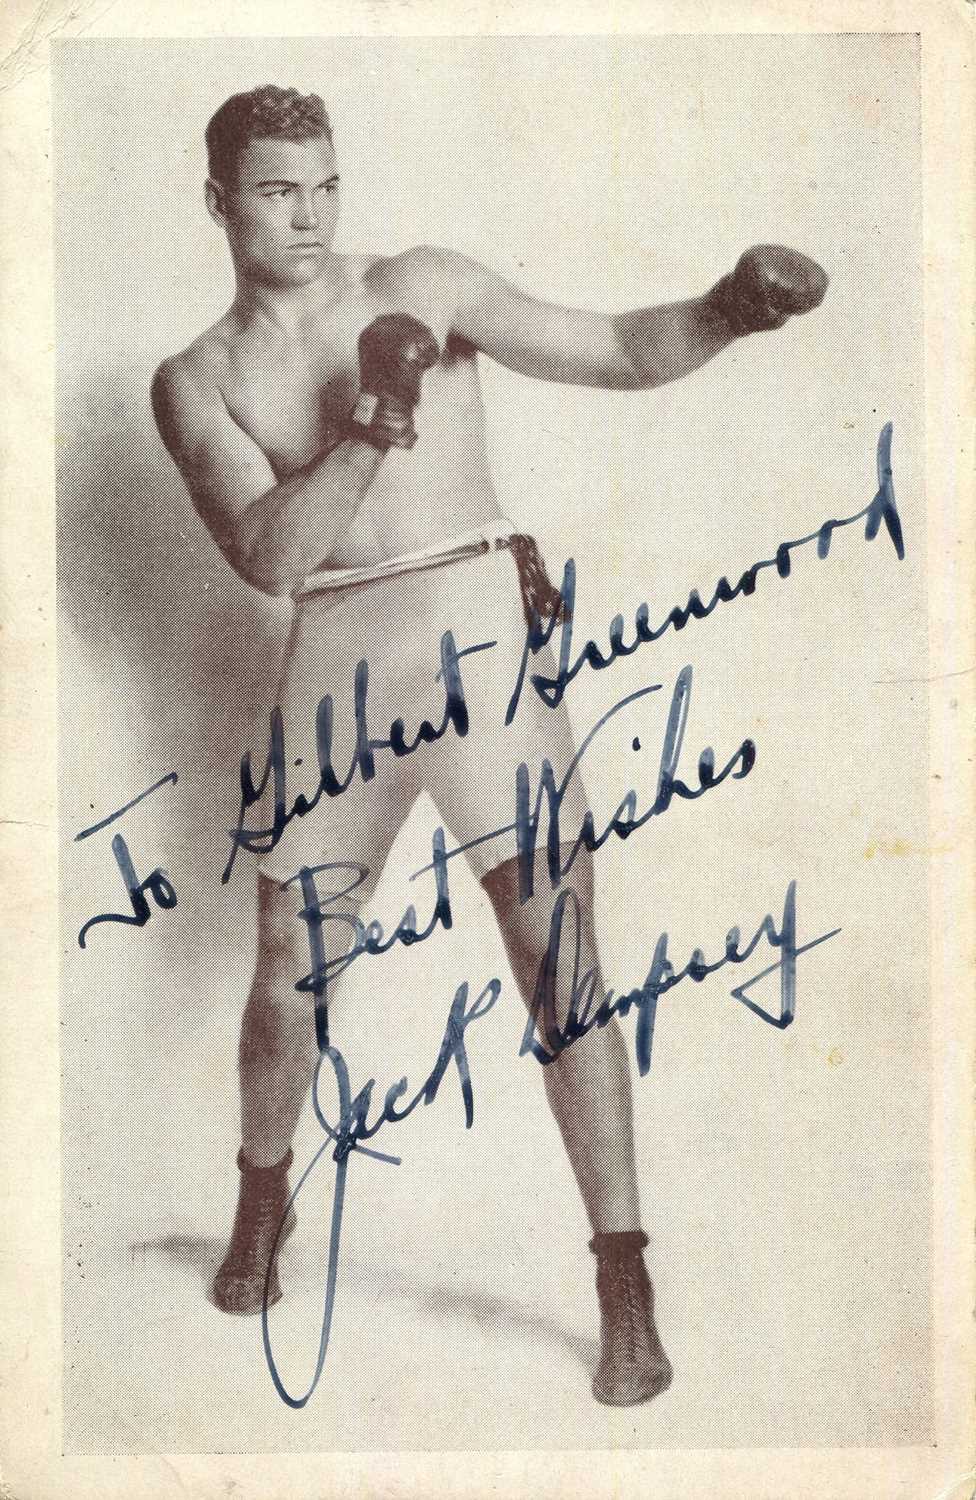 To Gilbert Greenwood
Best Wishes
Jack Dempsey